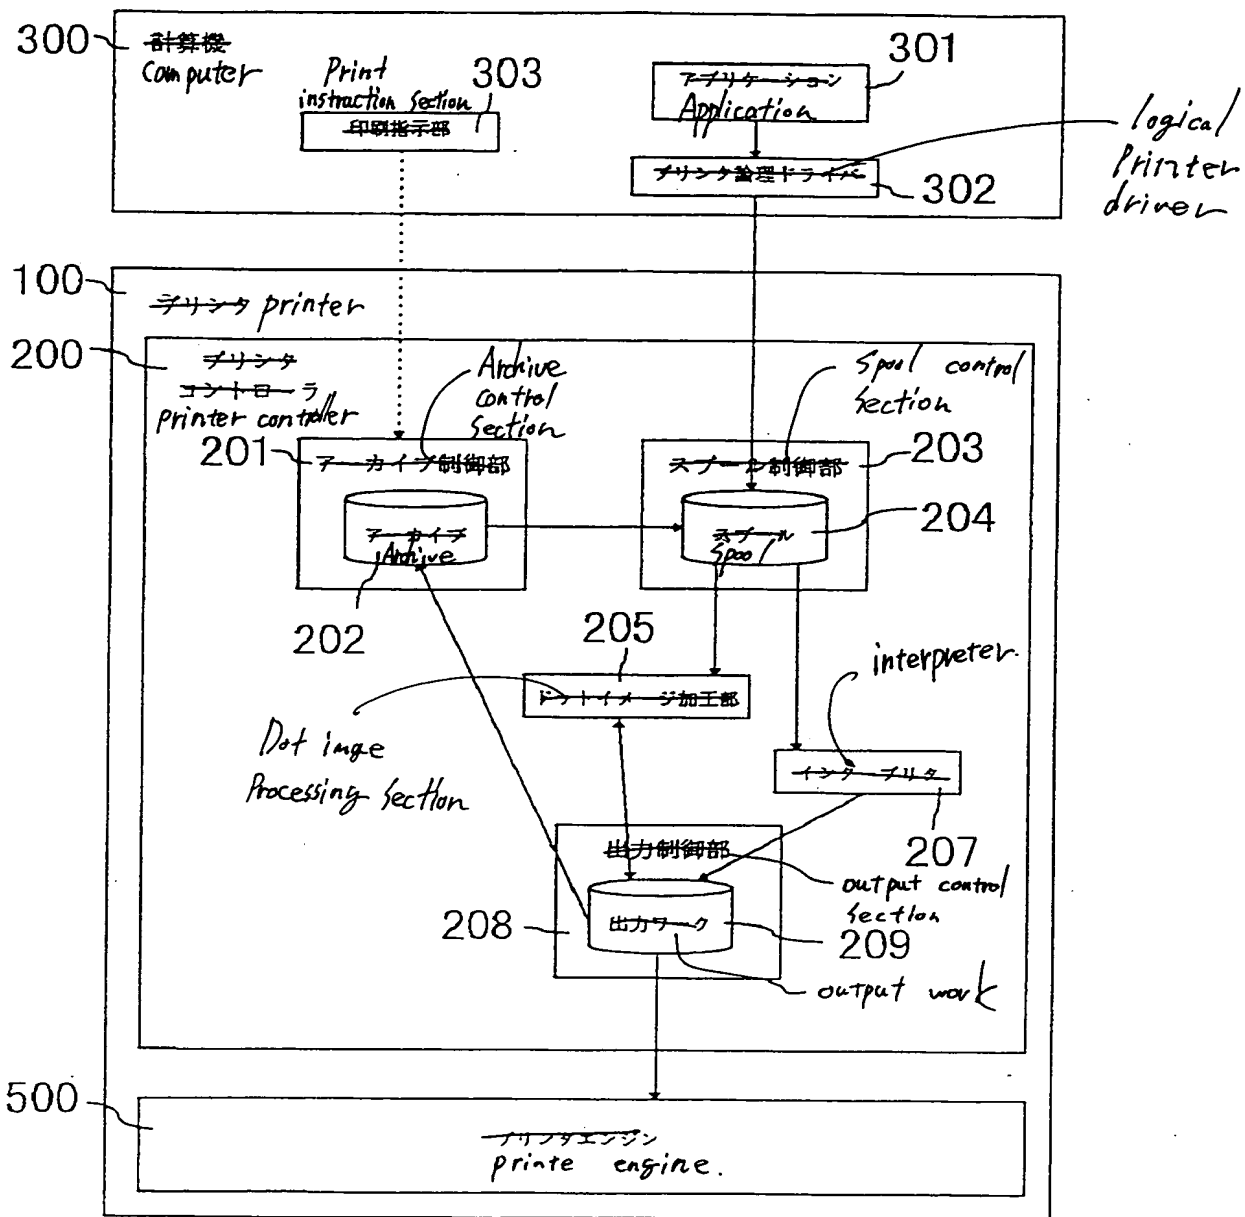 300
計算機
Computer
Print
instraction section
303
印刷指示部
301
アプリケーション
Application
プリンタ論理ドライバ
302
logical
Printer
driver
100
プリンタ printer
200
プリンタ
コントローラ
printer controller
Archive
control
section
201
アーカイブ制御部
アーカイブ
Archive
202
Spool control
section
スプール制御部
203
スプール
Spool
204
205
ドットイメージ加工部
Dot imge
Processing section
interpreter.
インタープリタ
207
出力制御部
output control
section
208
出力ワーク
209
output work
500
プリンタエンジン
printe engine.